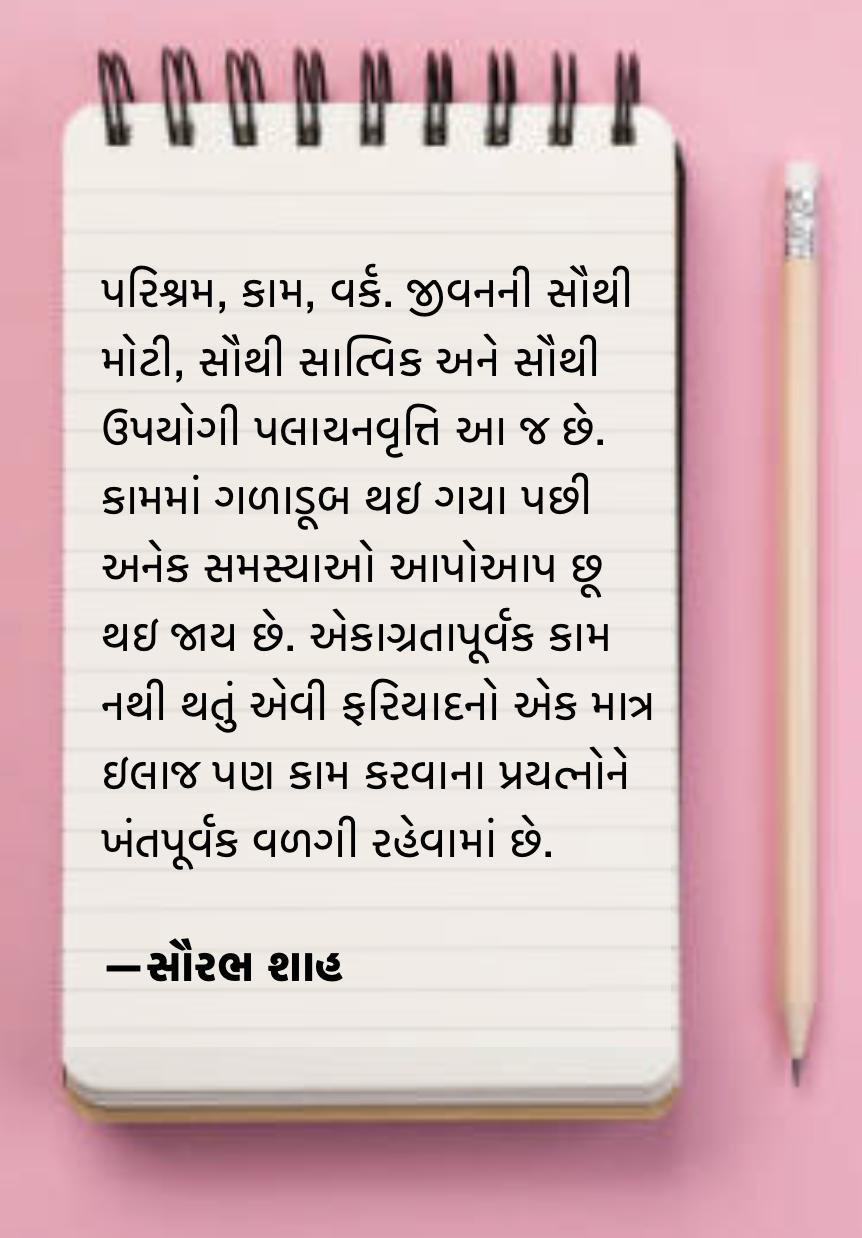 પરિશ્રમ, કામ, વર્ક. જીવનની સૌથી
મોટી, સૌથી સાત્વિક અને સૌથી
ઉપયોગી પલાયનવૃત્તિ આ જ છે.
કામમાં ગળાડૂબ થઇ ગયા પછી
અનેક સમસ્યાઓ આપોઆપ છૂ
થઇ જાય છે. એકાગ્રતાપૂર્વક કામ
નથી થતું એવી ફરિયાદનો એક માત્ર
ઇલાજ પણ કામ કરવાના પ્રયત્નોને
ખંતપૂર્વક વળગી રહેવામાં છે.
—સૌરભ શાહ